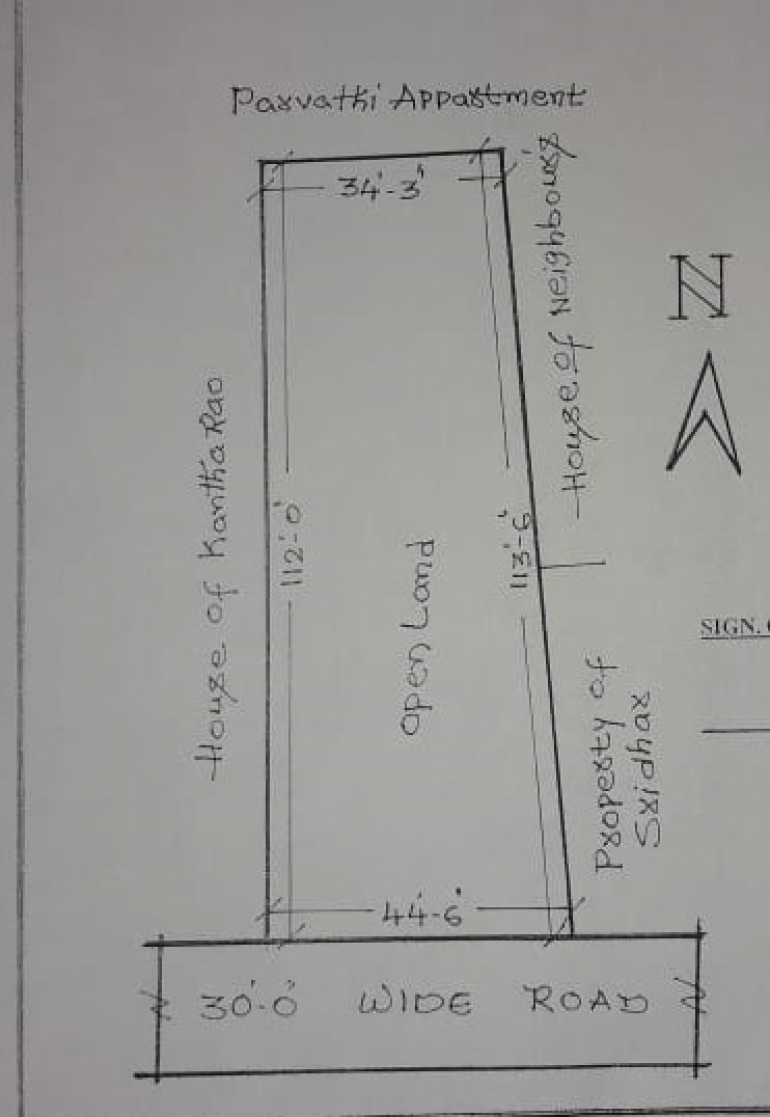 Parvathi Appartment
34'-3"
House of Neighbours
N
House of Kantha Rao
112'-0"
Open Land
113'-6"
SIGN.
Property of
Sridhar
44'-6"
30'-0" WIDE ROAD